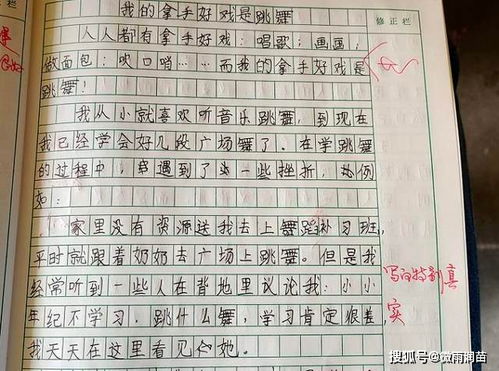 我的拿手好戏是跳舞
修正栏
人人都有拿手好戏：唱歌；画画；
做面包；吹口哨……而我的拿手好戏是
跳舞！
我从小就喜欢听音乐跳舞，到现在
我已经学会好几段广场舞了。在学跳舞
的过程中，遇到了一些挫折，例
如：
家里没有资源送我去上舞蹈补习班，
平时就跟着奶奶去广场上跳舞。但是我
经常听到一些人在背地里议论我：小小
年纪不学习，跳什么舞，学习肯定很差，
我天天在这里看见她。
写的特别真
实
搜狐号@微雨润苗